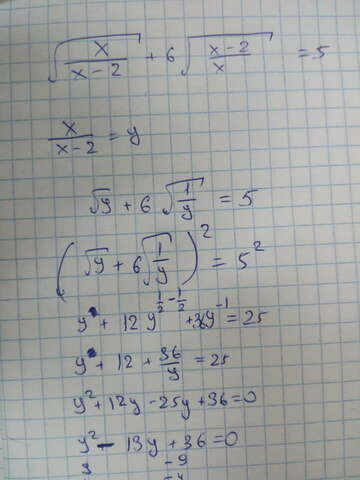 √(x/(x-2)) + 6√((x-2)/x) = 5
x/(x-2) = y
√y + 6√(1/y) = 5
(√y + 6√(1/y))² = 5²
y + 12y^(1/2-1/2) + 36y^(-1) = 25
y + 12 + 36/y = 25
y² + 12y - 25y + 36 = 0
y² - 13y + 36 = 0
9 -9